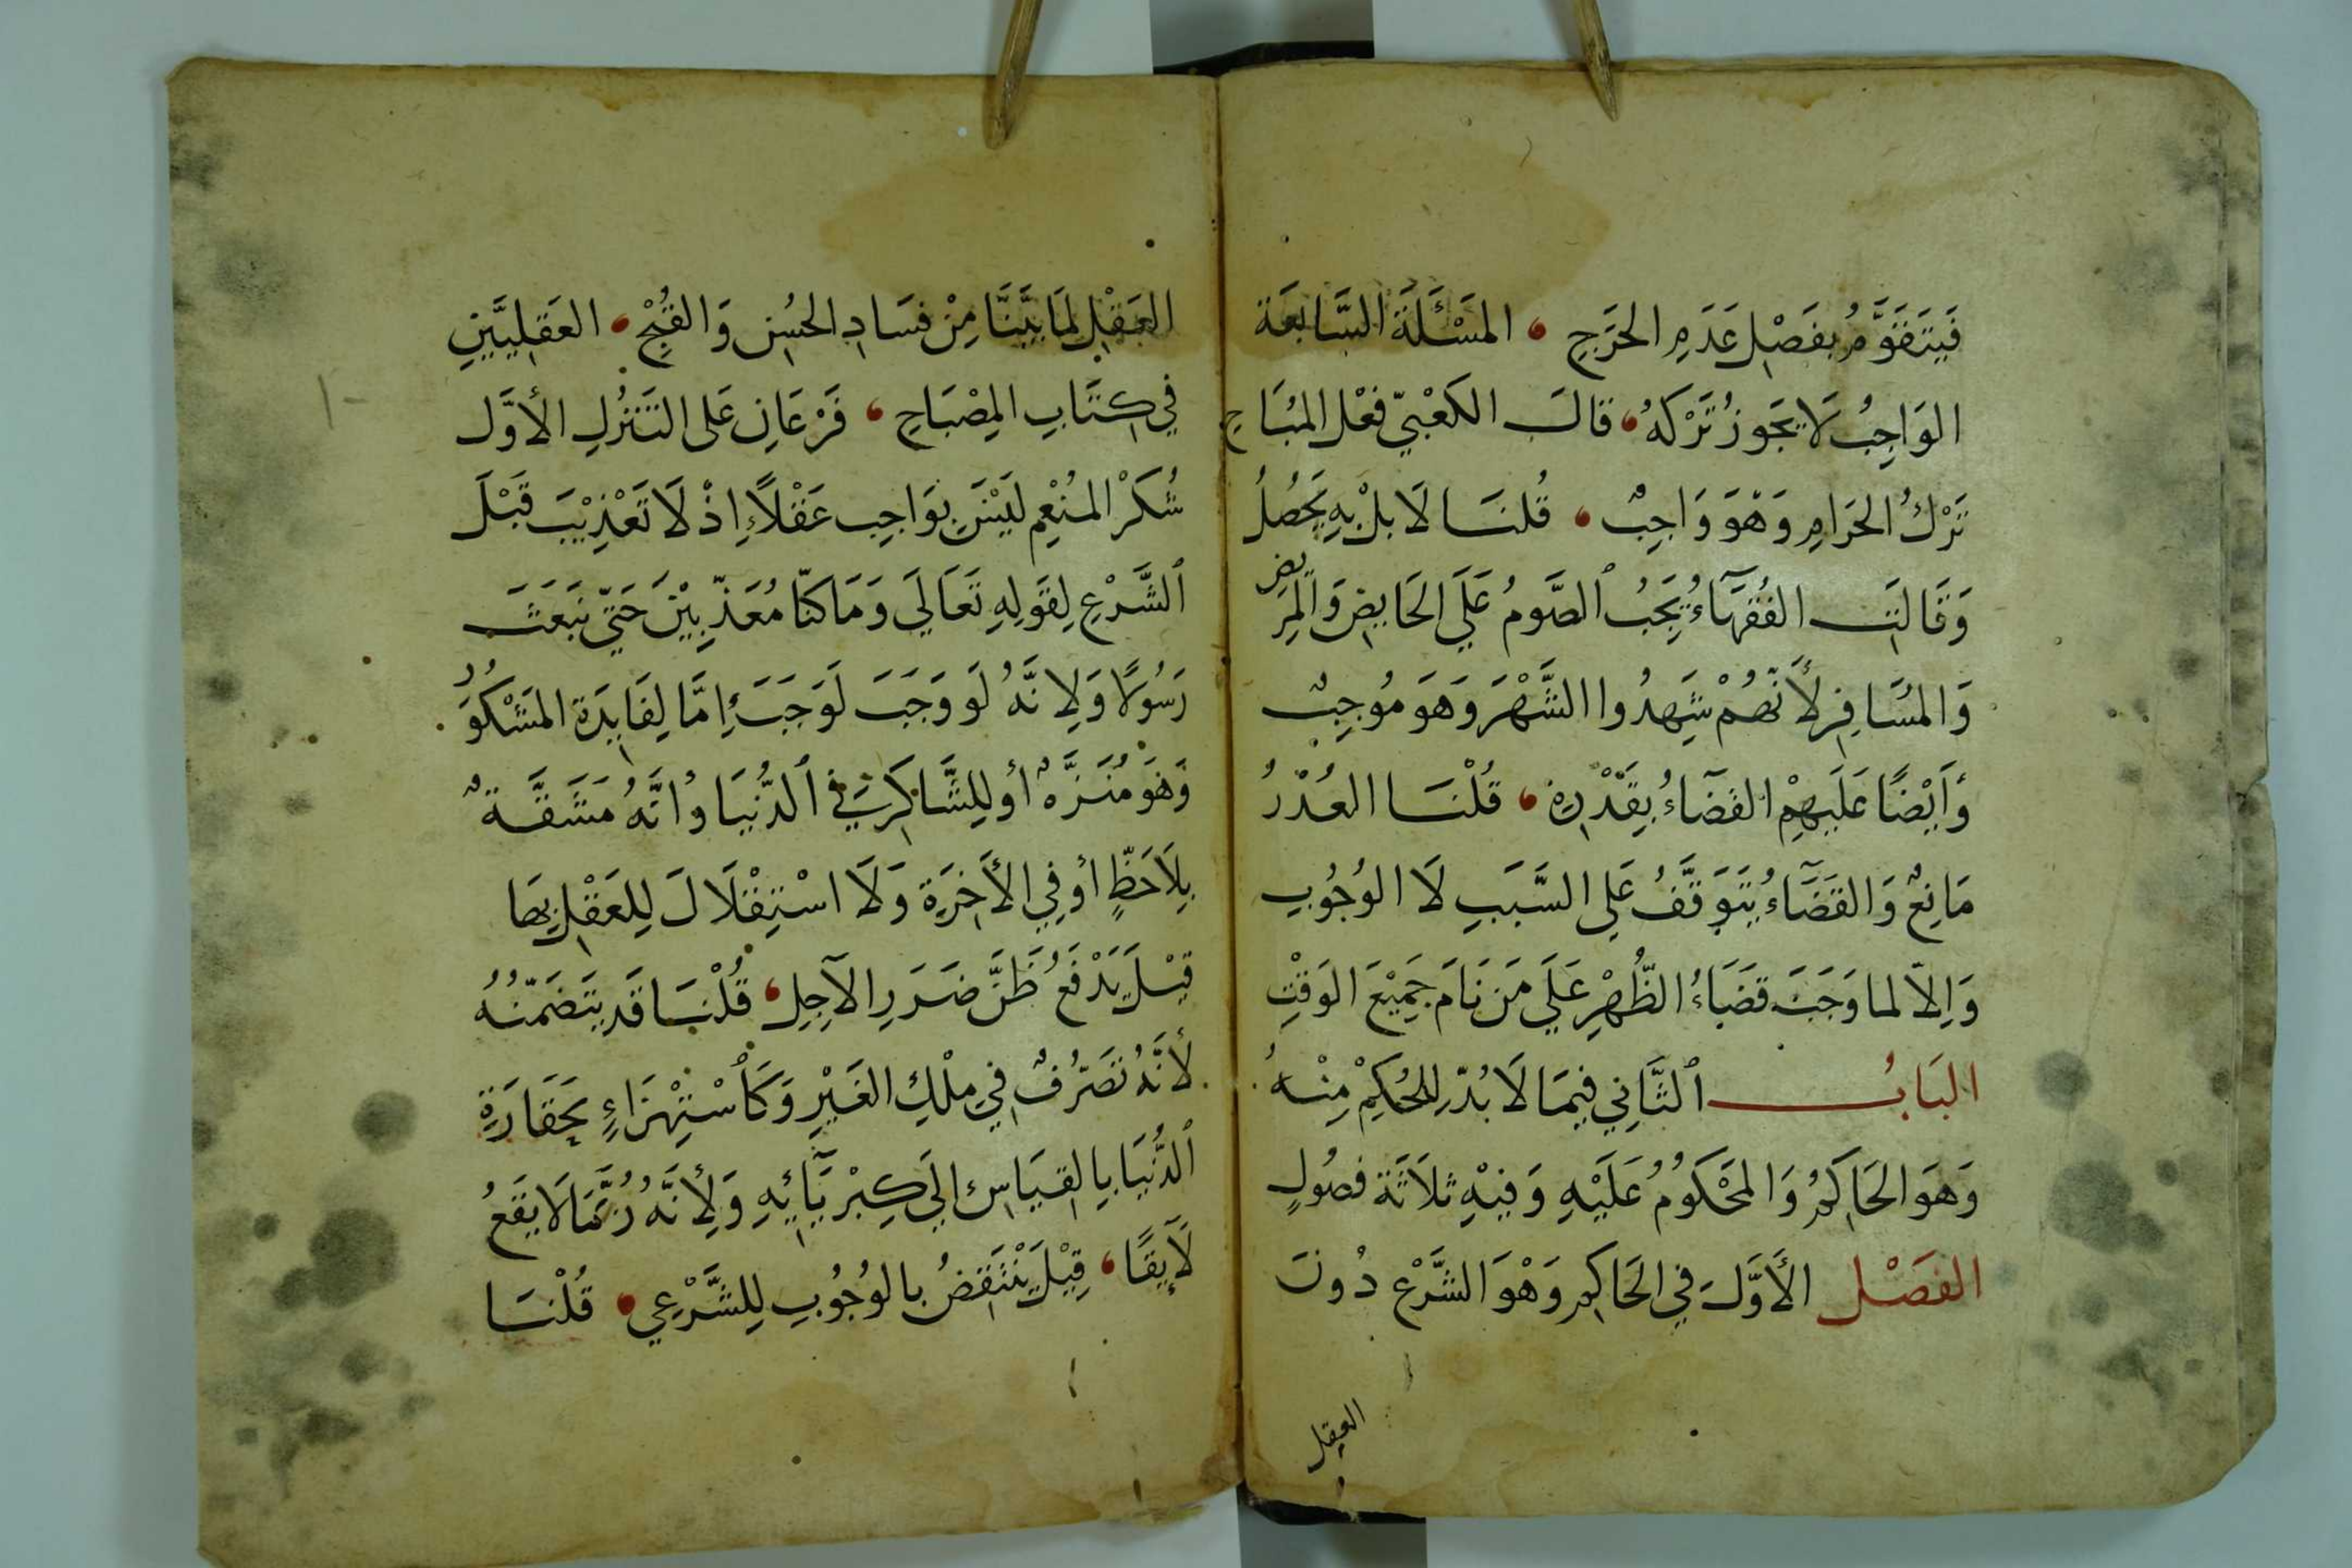 فَيَتَقَوَّمُ بِفَصْلِ عَدَمِ الحَرَجِ ، المَسْئَلَةَ السَّابِعَة
الوَاجِبُ لَا يَجَوزُ تَرْكَهُ ، قالَ الكَعْبيّ فعْل المُبَاحِ
تَرْكُ الحَرَامِ وَهْوَ وَاجِبٌ ، قُلنَا لَا بل بِهِ يَحْصُلُ
وَقَالَتِ الفُقَهَآءُ يَجِبُ ٱلصَّومُ عَلَى الحَايِضِ وَالمَرِيضِ
وَالمُسَافِرِ لأَنَّهُمْ شَهِدُوا الشَّهْرَ وَهَوَ مُوجِبٌ
وَأَيْضًا عَلَيهِمْ القَضَآءُ بِقَدْرِهِ ، قُلْنَا العُذْرُ
مَانِعٌ وَالقَضَآءُ يَتَوَقَّفُ عَلى السَّبَبِ لَا الوُجُوبِ
وَاِلاّ لما وَجَبَ قَضَاءُ الظُّهْرِ عَلَي مَنَ نَامَ جَمِيْعَ الوَقْتِ
البَابُ ٱلثَّانِي فِيمَا لَا بُدّ لِلحُكِمْ مِنْهُ
وَهَوَ الحَاكِمُ وَالمَحْكَومُ عَلَيْهِ وَفِيْهِ ثلَاثَة فصُولٍ
الفَصْل الأَوَّلَ فِي الحَاكِمِ وَهْوَ الشَّرْع دُونَ
العقل
العَقْلِ لِمَا بَيَّنَّا مِنْ فسَادِ الحُسْنِ وَالقُبْحِ ، العَقلِيَّيْنِ
فِي كِتَابِ المِصْبَاحِ ، فَرْعَانِ عَلى التَنَزُّلِ الأوَّل
شُكَرْ المُنْعِم لَيْسَ بوَاجِب عَقْلاً إِذْ لَا تَعْذِيْبَ قَبْلَ
ٱلشَّرْعِ لِقَولِهِ تَعَالَي وَمَا كنّا مُعَذّبِيْنَ حَتّي نَبْعَثَ
رَسُولًا وَلِانَّهُ لَو وَجَبَ لَوَجَبَ إِمَّا لِفَايِدَة المَشْكُور
وَهوَ مُنَزَّهٌ أو لِلِشَّاكِرِ فِي ٱلدُّنْيَا وانَّهُ مَشَقَّةٌ
بِلَا حَظٍّ أو فِي الأَخِرَة وَلَا اسْتِقْلَالَ لِلعَقْلِ بهَا
قِيْلَ يَدْفَعُ ظَنَّ ضَرَرِ الآجِلِ ، قُلْنَا قَد يَتَضَمَّنُهُ
لأنَّهُ تصَرُّفٌ فِي مِلْكِ الغَيْرِ وَكَأسْتِهْزَاءٍ بحَقَارَةِ
ٱلدُّنْيَا بِالقِيَاسِ اِلَي كِبْرِيَآئِهِ وَلأَِنَّهُ رُبَّمَا لَا يَقَعُ
لَآيِقًا ، قِيْلَ يَنْتَقِضُ بالوُجُوبِ لِلشَّرْعِي ، قُلْنَا